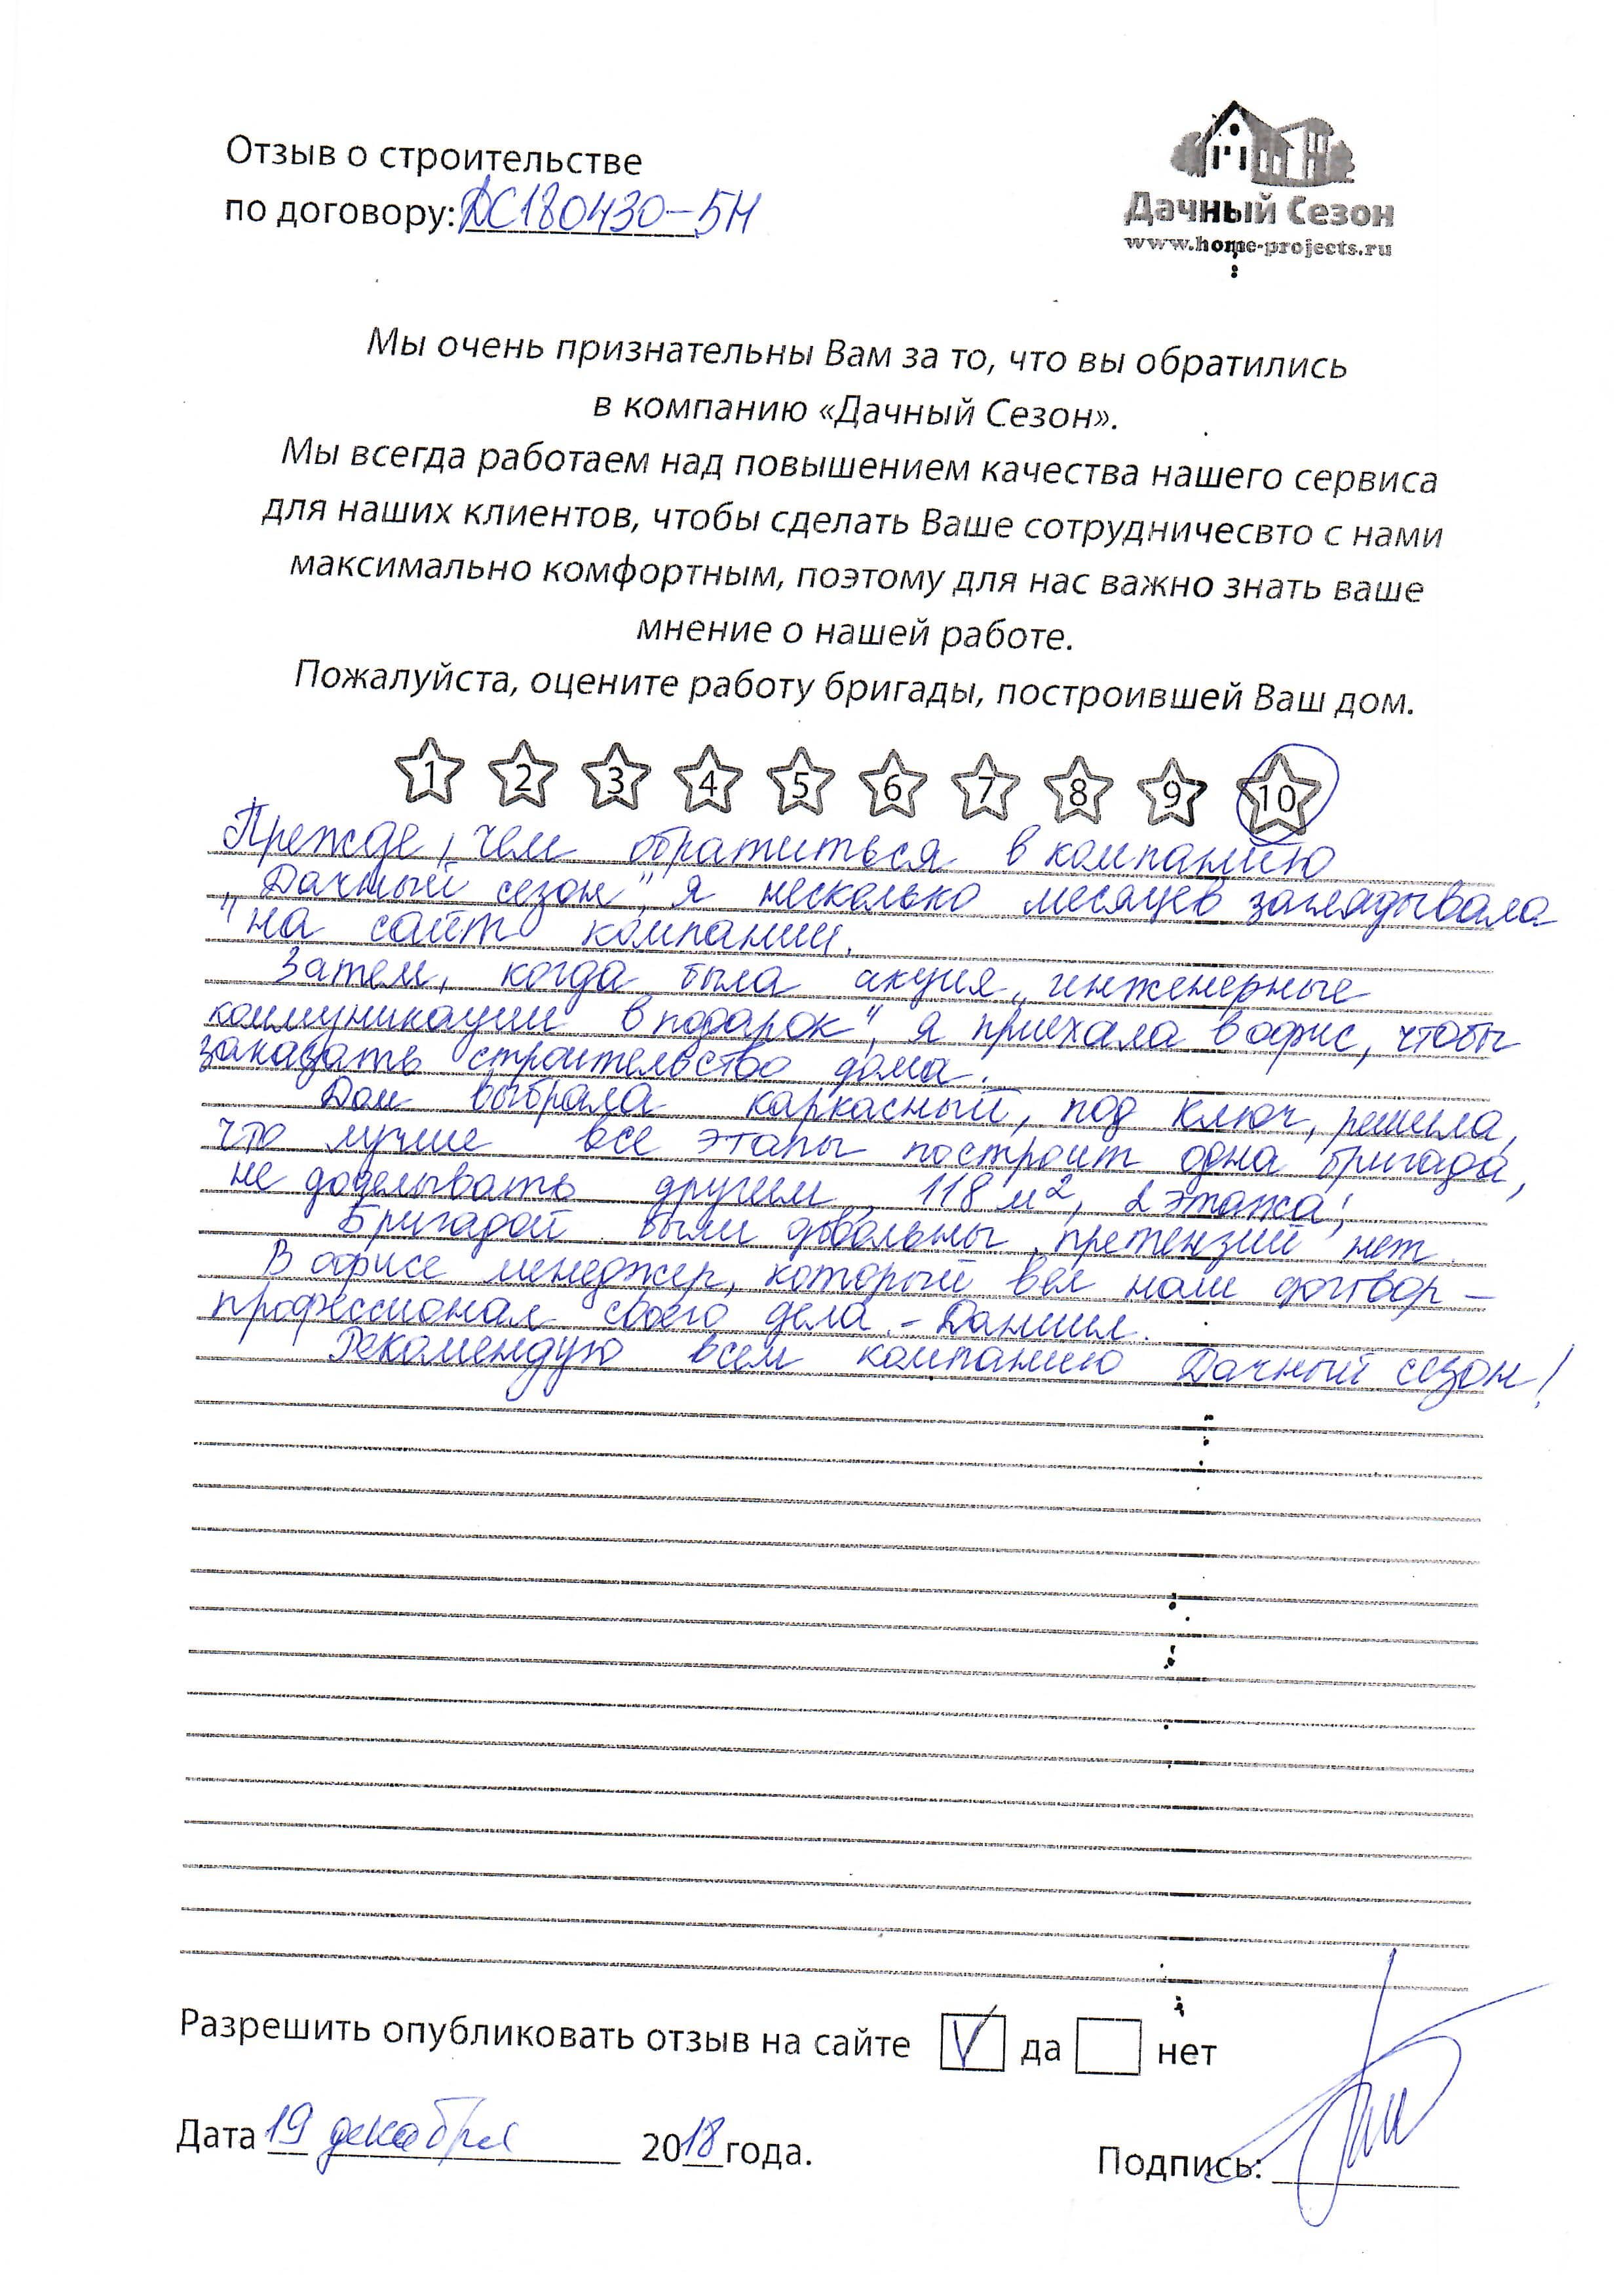 Отзыв о строительстве
по договору: ДС180430-5Н
Дачный Сезон
www.home-projects.ru
Мы очень признательны Вам за то, что вы обратились
в компанию «Дачный Сезон».
Мы всегда работаем над повышением качества нашего сервиса
для наших клиентов, чтобы сделать Ваше сотрудничесвто с нами
максимально комфортным, поэтому для нас важно знать ваше
мнение о нашей работе.
Пожалуйста, оцените работу бригады, построившей Ваш дом.
1 2 3 4 5 6 7 8 9 10
Прежде, чем обратиться в компанию
„Дачный сезон", я несколько месяцев заглядывала
на сайт компании.
Затем, когда была акция „инженерные
коммуникации в подарок", я приехала в офис, чтобы
заказать строительство дома.
Дом выбрала каркасный, под ключ, решила,
что лучше все этапы построит одна бригада,
не доделывать другим 118 м², 2 этажа;
Бригадой были довольны, претензий нет.
В офисе менеджер, который вел наш договор –
профессионал своего дела. – Даниил.
Рекомендую всем компанию Дачный сезон!
Разрешить опубликовать отзыв на сайте V да нет
Дата 19 декабря 2018 года.
Подпись: